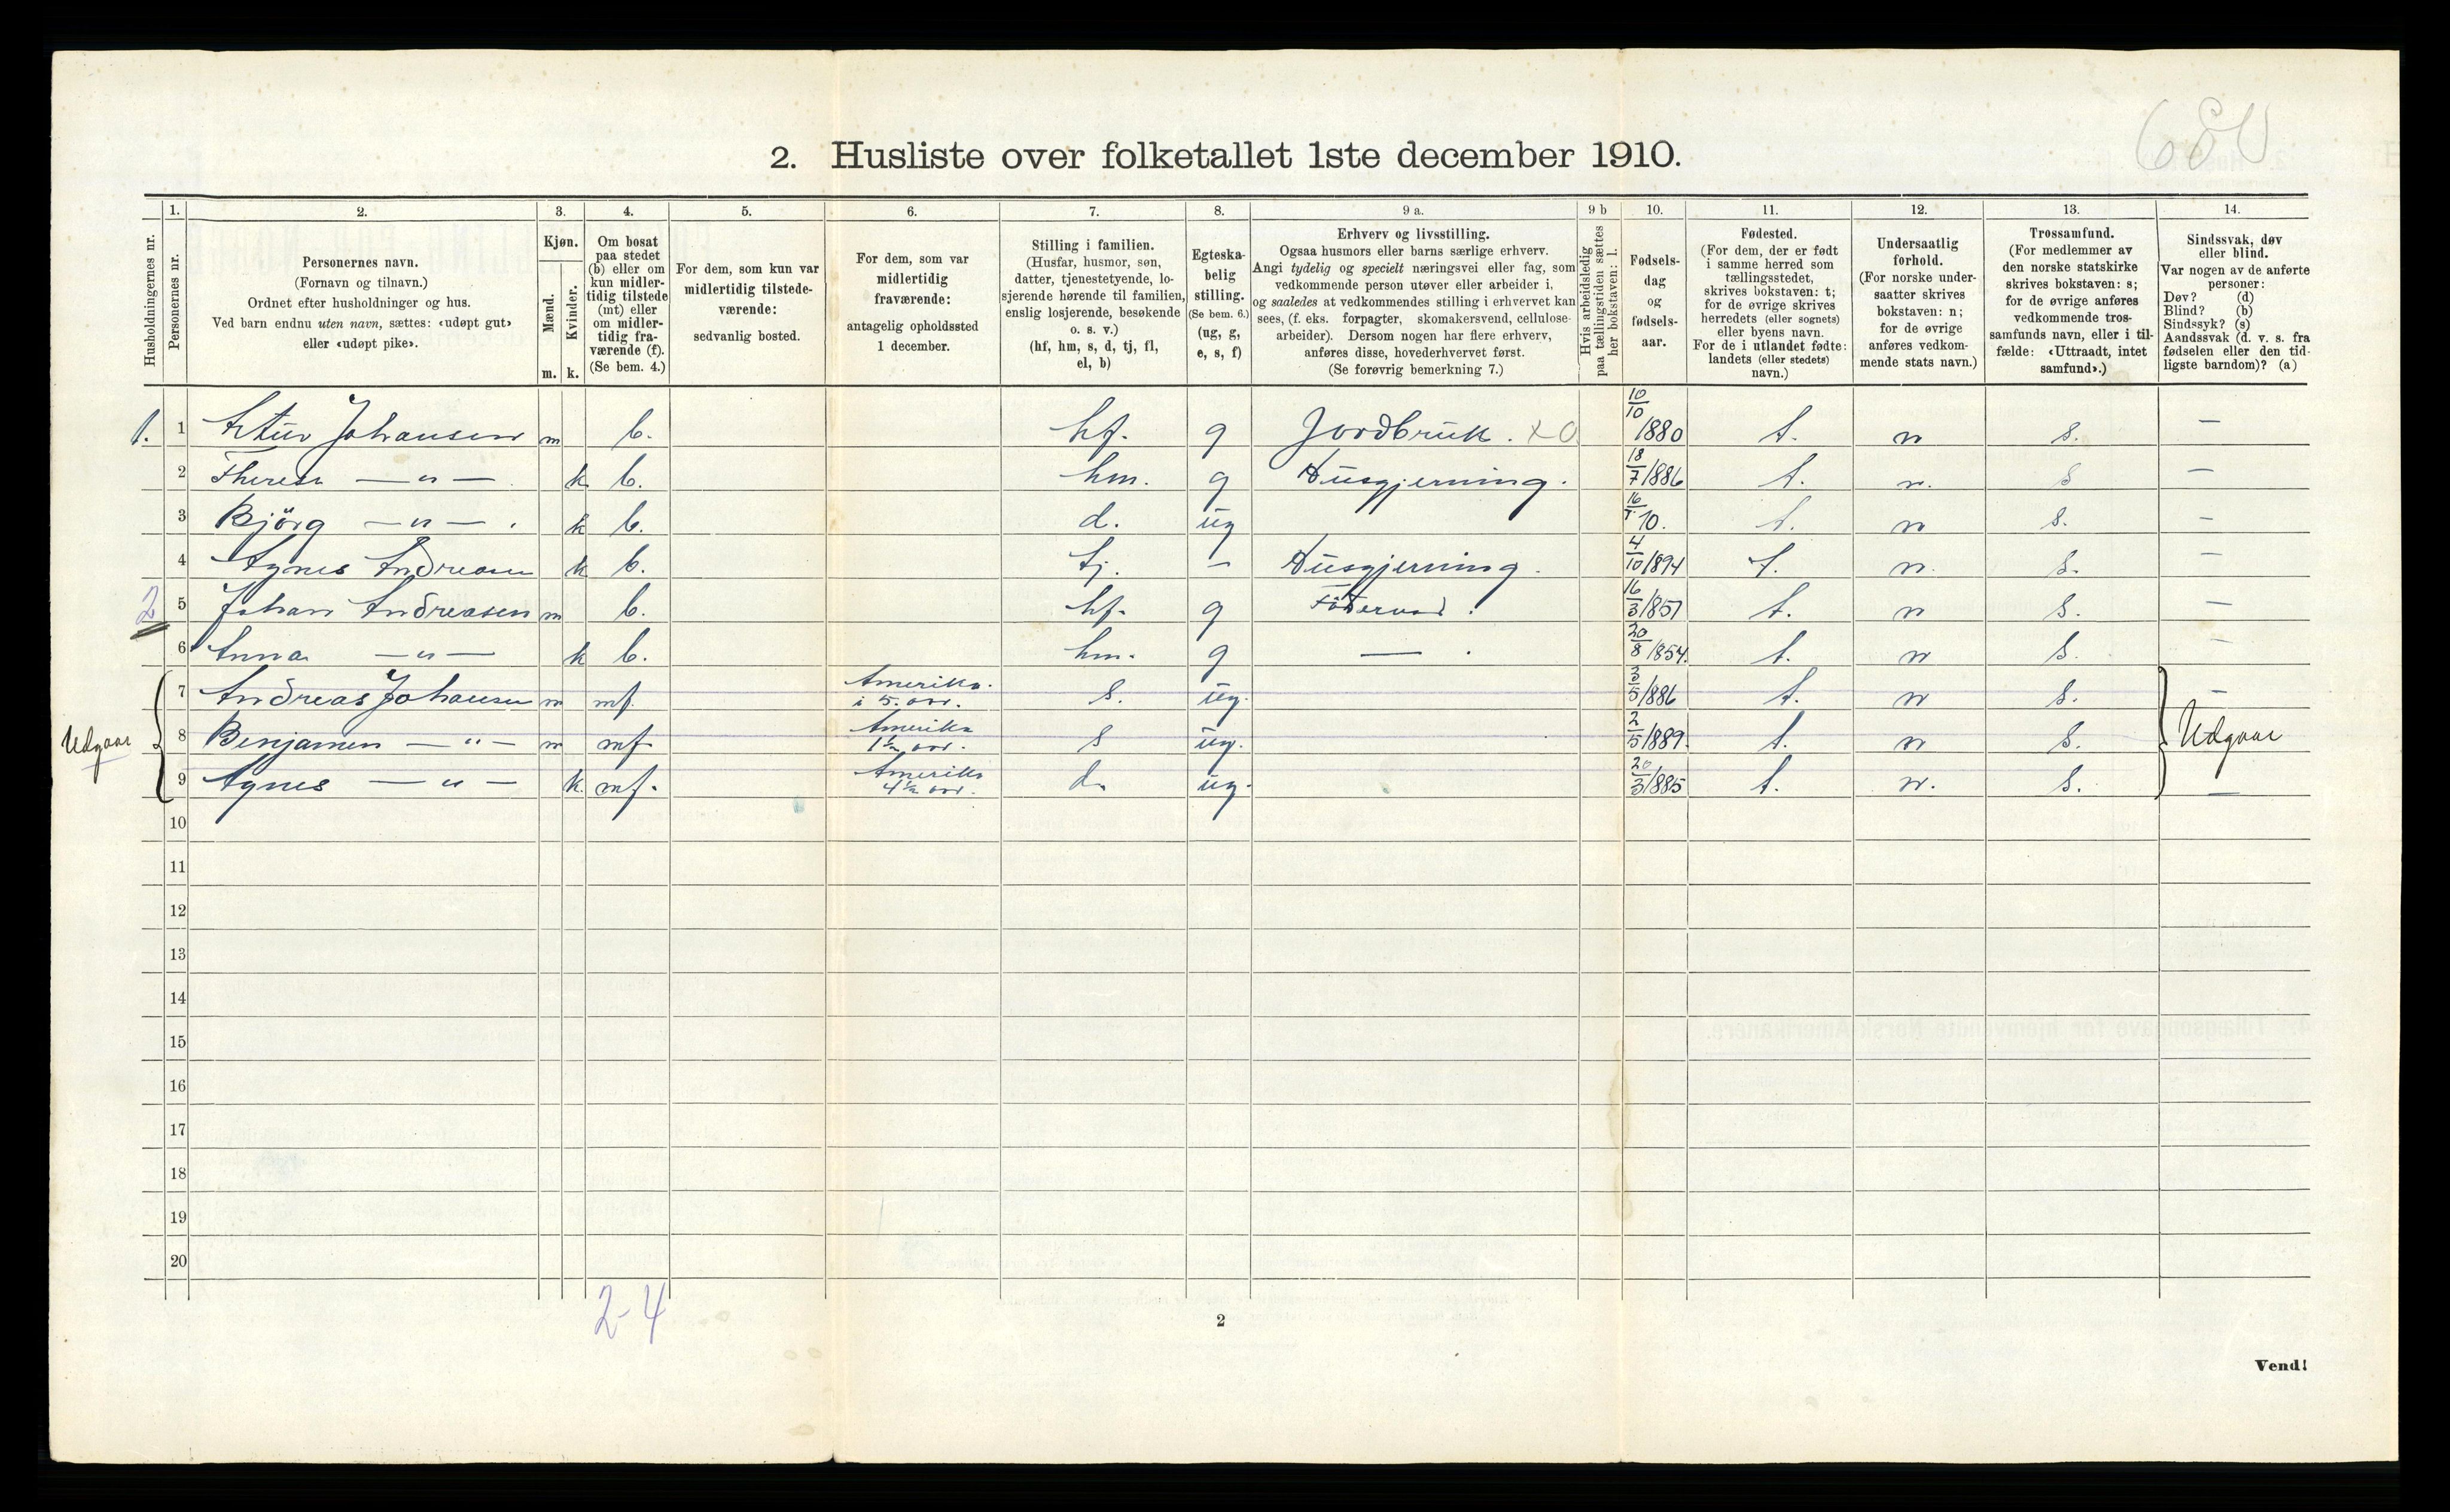 680
2. Husliste over folketallet 1ste december 1910.
Husholdningernes nr.
1.
Personernes nr.
2.
Personernes navn.
(Fornavn og tilnavn.)
Ordnet efter husholdninger og hus.
Ved barn endnu uten navn, sættes: «udøpt gut»
eller «udøpt pike».
3.
Kjøn.
Mænd.
Kvinder.
m. k.
4.
Om bosat
paa stedet
(b) eller om
kun midler-
tidig tilstede
(mt) eller
om midler-
tidig fra-
værende (f).
(Se bem. 4.)
5.
For dem, som kun var
midlertidig tilstede-
værende:
sedvanlig bosted.
6.
For dem, som var
midlertidig
fraværende:
antagelig opholdssted
1 december.
7.
Stilling i familien.
(Husfar, husmor, søn,
datter, tjenestetyende, lo-
sjerende hørende til familien,
enslig losjerende, besøkende
o. s. v.)
(hf, hm, s, d, tj, fl,
el, b)
8.
Egteska-
belig
stilling.
(Se bem. 6.)
(ug, g,
e, s, f)
9 a.
Erhverv og livsstilling.
Ogsaa husmors eller barns særlige erhverv.
Angi tydelig og specielt næringsvei eller fag, som
vedkommende person utøver eller arbeider i,
og saaledes at vedkommendes stilling i erhvervet kan
sees, (f. eks. forpagter, skomakersvend, cellulose-
arbeider). Dersom nogen har flere erhverv,
anføres disse, hovederhvervet først.
(Se forøvrig bemerkning 7.)
9 b
Hvis arbeidsledig
paa tællingstiden sættes
her bokstaven: l.
10.
Fødsels-
dag
og
fødsels-
aar.
11.
Fødested.
(For dem, der er født
i samme herred som
tællingsstedet,
skrives bokstaven: t;
for de øvrige skrives
herredets (eller sognets)
eller byens navn.
For de i utlandet fødte:
landets (eller stedets)
navn.)
12.
Undersaatlig
forhold.
(For norske under-
saatter skrives
bokstaven: n;
for de øvrige
anføres vedkom-
mende stats navn.)
13.
Trossamfund.
(For medlemmer av
den norske statskirke
skrives bokstaven: s;
for de øvrige anføres
vedkommende tros-
samfunds navn, eller i til-
fælde: «Uttraadt, intet
samfund».)
14.
Sindssvak, døv
eller blind.
Var nogen av de anførte
personer:
Døv? (d)
Blind? (b)
Sindssyk? (s)
Aandssvak (d. v. s. fra
fødselen eller den tid-
ligste barndom)? (a)
1. 1 Artur Johansen m b. hf. g Jordbruk. x 0 10/10 1880 t. n s. —
2 Theresa — " — k b. hm. g Husgjerning. 18/7 1886 t. n. s —
3 Björg — " — . k b. d. ug 16/ 10. t. n s. —
4 Agnes Andreasen k b. tj. — Husgjerning. 4/10 1894 t. n. s. —
2 5 Johan Andreasen m b. hf. g Föderaad. 16/3 1857 t. n s. —
6 Anna — " — k b. hm. g — . 20/8 1854. t. n s. —
7 Andreas Johansen m mf. Amerika. i 5. aar. s. ug. 3/5 1886 t. n s. —
Udgaar 8 Benjamen — " — m mf Amerika 1½ aar. s ug. 2/5 1889. t. n s. Udgaar
9 Agnes — " — k. mf. Amerika 4½ aar. d. ug. 20/3 1885 t. n. s. —
10
11
12
13
14
15
16
17
18
19
20
2-4
2
Vend!